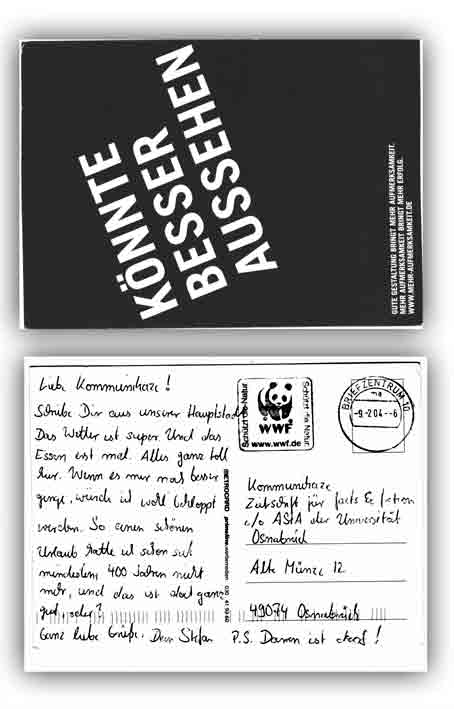 KÖNNTE
BESSER
AUSSEHEN
GUTE GESTALTUNG BRINGT MEHR AUFMERKSAMKEIT.
MEHR AUFMERKSAMKEIT BRINGT MEHR ERFOLG.
WWW.MEHR-AUFMERKSAMKEIT.DE
Liebe Kommunikaze!
Schreibe Dir aus unserer Hauptstadt
Das Wetter ist super. Und das
Essen erst mal. Alles ganz toll
hier. Wenn es mir noch besser
ginge, würde ich wohl bekloppt
werden. So einen schönen
Urlaub hatte ich schon seit
mindestens 400 Jahren nicht
mehr, und das ist doch ganz
gut, oder?
Ganz liebe Grüße, Dein Stefan
P.S. Darren ist doof!
Schützt die Natur
WWF
www.wwf.de
Schützt die Natur
BRIEFZENTRUM 10
-9.2.04--6
Kommunikaze
Zeitschrift für facts & fiction
c/o AStA der Universität
Osnabrück
Alte Münze 12
49074 Osnabrück